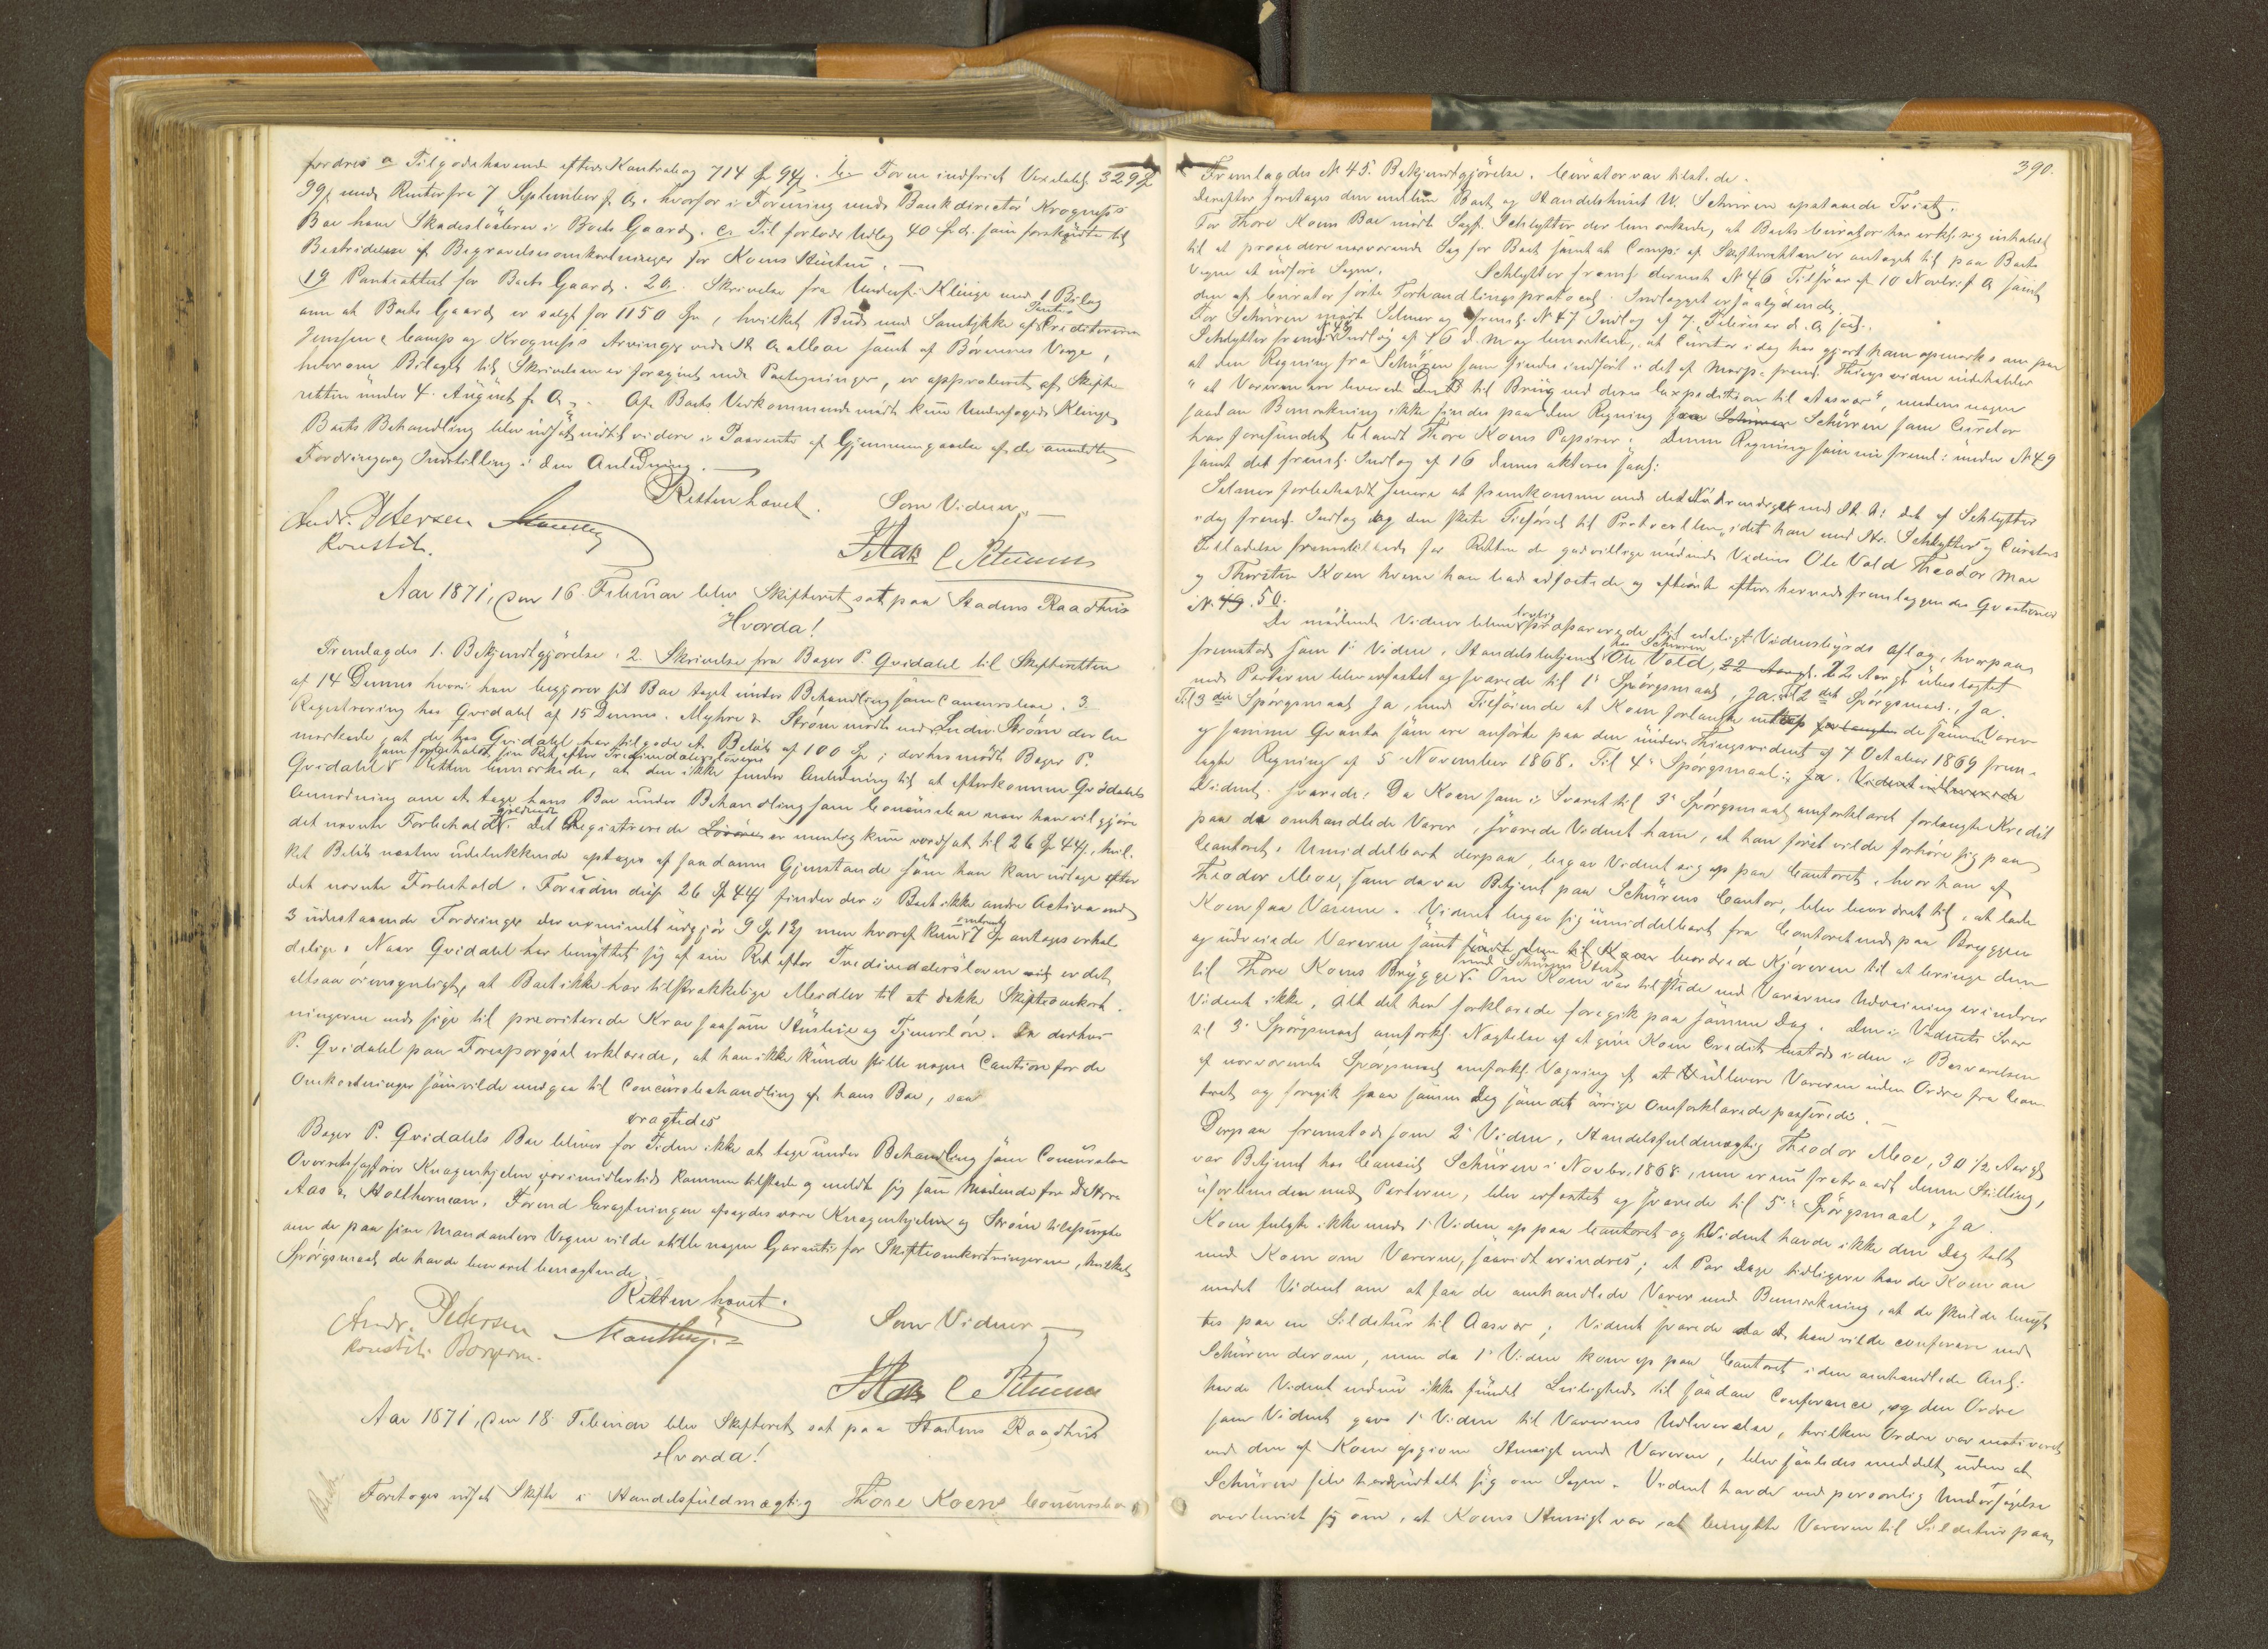 fordres a Tilgodehavende efter Kontrabog 714 Sp 94 s. b. For en indfriet Vexelobl. 329 Sp
99 s med Renter fra 7 September f. A. hvorfor i Forening med Bankdirecteur Krogness's
Bo han Skadesløsbrev i Boets Gaard. c. Til forlods Udlæg 40 Sp. d. som forskudte til
Bestridelse af Begravelsesomkostninger for Koens Hustru. —
19 Panteattest for Boets Gaard. 20. Skrivelse fra Underf. Klinge med 1 Bilag
om at Boets Gaard er solgt for 1150 Sp, hvilket Bud med Samtykke af Pante Creditorerne
Jenssen & Comp og Krogness's Arvinger ved St. A. Halboe samt af Børnenes Verge,
hvorom Bilaget til Skrivelsen er forsynet med Paategninger, er approberet af Skifte-
retten under 4. August f. A. – Paa Boets Vedkommende mødte kun Underfoged Klinge
Boets Behandling blev udsat indtil videre i Paavente af Gjennemgaaelse af de anmeldte
Fordringer og Indstilling i den Anledning. —
Retten hævet. Som Vidner. —
Andr. Petersen
Konstit.
Aar 1871, den 16. Februar blev Skifteret sat paa Stadens Raadhus
Hvorda!
Fremlagdes 1. Bekjendtgjørelse. 2. Skrivelse fra Bager P. Qvidahl til Skifteretten
af 14 Dennes hvori han begjærer sit Bo taget under Behandling som Concursboe. 3
Registrering hos Qvidahl af 15 Dennes. Myhre & Strøm mødte ved Ludv. Strøm der be-
mærkede, at de hos Qvidahl har tilgode et Beløb af 100 Sp; derhos mødte Bager P.
som forbeholdt sin Ret efter Tredivedalersloven
Qvidahl. Retten bemærkede, at den ikke finder Anledning til at efterkomme Qvidahls
Anmodning om at tage hans Bo under Behandling som Concursboe naar han vil gjøre
gjældende
det nævnte Forbehold. Det Registrerede Løsøre er nemlig kun værdsat til 26 Sp 44 s, hvil-
ket Beløb næsten udelukkende optages af saadanne Gjenstande som han kan udtage efter
det nævnte Forbehold. Foruden disse 26 Sp 44 s findes der i Boet ikke andre Activa end
3 udestaaende Fordringer der nominelt udgjør 9 Sp 12 s men hvoraf kun omtrent 7 Sp antages erhol-
delige. Naar Qvidahl har benyttet sig af sin Ret efter Tredivedalersloven er det
altsaa øiensynligt, at Boet ikke har tilstrækkelige Midler til at dække Skifteomkost-
ningerne end sige til prioriterede Krav saasom Husleie og Tjenerløn. Da derhos
P. Qvidahl paa Forespørgsel erklærede, at han ikke kunde stille nogen Caution for de
Omkostninger som vilde medgaa til Concursbehandling af hans Bo, saa
eragtedes
Bager P. Qvidahls Bo bliver for Tiden ikke at tage under Behandling som Concursboe
Overretssagfører Knagenhjelm var imidlertid kommen tilstede og meldte sig som Mødende for
Aas & Holtherman. Forend Eragtningen afsagdes vare Knagenhjelm og Strøm tilspurgte
om de paa sine Mandanters Vegne vilde stille nogen Garanti for Skifteomkostningerne, hvilket
Spørgsmaal de havde besvaret benægtende.
Retten hævet. Som Vidner —
Andr. Petersen
Konstit. Borgerm.
Aar 1871, den 18. Februar blev Skifteret sat paa Stadens Raadhus
Hvorda!
Foretoges udsat Skifte i Handelsfuldmægtig Thore Koens Concursbo
390.
Fremlagdes N 45. Bekjendtgjørelse. Curator var tilstede.
Derefter foretoges den mellem Boet og Handelshuset W. Schüren opstaaede Tvist.
For Thore Koens Bo mødte Sagf. Schlytter der bemærkede, at Boets Curator har erkl. sig inhabil
til at procedere nærværende Sag for Boet samt at Comp: af Skifteretten er antaget til paa Boets
Vegne at udføre Sagen. Schlytter freml. dernæst N 46 Tilsvar af 10 Novbr. f. A. samt
den af Curator førte Forhandlingsprotocol. Indlægget er saalydende:
For Schüren mødte Selmer og freml. N 47 Indlæg af 7. Februar d. A. saal.:
Schlytter freml. N 48 Indlæg af 16 d. M og bemærkede, at Curator i dag har gjort ham opmærks. om paa
at den Regning fra Schüren som findes indført i det af Modp. freml. Thingsvidne indeholder
"at Varerne ere leverede til Brug ved deres Expedition til Aasvær", medens nogen
saadan Bemærkning ikke findes paa den Regning fra Schüren som Curator
har forefundet blandt Thore Koens Papirer. Denne Regning som nu freml: under N 49
samt det freml. Indlæg af 16 dennes akteres saal:
Selmer forbeholdt senere at fremkomme med det Nødvendige med Hs. A: det af Schlytter
idag freml. Indlæg og den skete Tilførsel til Protocollen, idet han med Hr. Schlytters og Curators
Tilladelse fremstillede for Retten de godvillige mødende Vidner Ole Vold Theodor Moe
og Thorsten Koen hvem han bad edfæstede og afhørte efter hermed fremlæggendes Qvæstioner
N. 50.
De mødende Vidner bleve lovlig præparerede til edeligt Vidnesbyrds Aflæg, hvorpaa
fremstod som 1. Vidne, Handelsbetjent hos Schüren Ole Vold, 22 Aar gl. ubeslægtet
med Parterne blev edfæstet og svarede til 1. Spørgsmaal, Ja. Til 2det Spørgsmaal, Ja.
Til 3die Spørgsmaal Ja, med Tilføiende at Koen forlangte de samme Varer
og samme Qvanta som ere anførte paa den under Thingsvidnet af 7 October 1869 frem-
lagte Regning af 5 November 1868. Til 4. Spørgsmaal:
Vidnet svarede: Da Koen som i Svaret til 3. Spørgsmaal omforklaret forlangte Kredit
paa de omhandlede Varer, svarede Vidnet ham, at han først vilde forhøre sig paa
Contoret. Umiddelbart derpaa, begav Vidnet sig op paa Contoret, hvor han af
Theodor Moe, som da var Betjent paa Schürens Contor, blev beordret til, at lade
Koen faa Varerne. Vidnet begav sig umiddelbart fra Contoret ned paa Bryggen
og udveiede Varerne samt beordrede Kjøreren til at bringe dem
til Thore Koens Brygge. Om Koen var tilstede ved Varernes Udveining erindrer
Vidnet ikke. Alt det her forklarede foregik paa samme Dag. Den i Vidnets Svar
til 3. Spørgsmaal omforkl. Nægtelse af at give Koen Credit bestod i den i Besvarelsen
af nærværende Spørgsmaal omforkl. Vægring af at udlevere Varerne uden Ordre fra Con-
toret og foregik paa samme Dag som det øvrige Omforklarede passerede. —
Derpaa fremstod som 2. Vidne, Handelsfuldmægtig Theodor Moe, 30 1/2 Aar gl.
var Betjent hos Consul Schüren i Novbr. 1868, men er nu fratraadt denne Stilling,
uforbunden med Parterne, blev edfæstet og svarede til 5. Spørgsmaal, Ja.
Koen fulgte ikke med 1. Vidne op paa Contoret og Vidnet havde ikke den Dag talt
med Koen om Varerne, saavidt erindres; et Par Dage tidligere havde Koen an-
modet Vidnet om at faa de omhandlede Varer med Bemærkning, at de skulde benyt-
tes paa en Sildetur til Aasvær; Vidnet svarede da at han vilde conferere med
Schüren derom, men da 1. Vidne kom op paa Contoret i den omhandlede Anl.
havde Vidnet endnu ikke fundet Leilighed til saadan Conference, og den Ordre
som Vidnet gav 1. Vidne til Varernes Udleverelse, hvilken Ordre var motiveret
ved den af Koen opgivne Hensigt med Varerne, blev saaledes meddelt, uden at
Schüren selv havde udtalt sig om Sagen. Vidnet havde ved personlig Undersøgelse
overbeviist sig om, at Koens Hensigt var at benytte Varerne til Sildetur paa